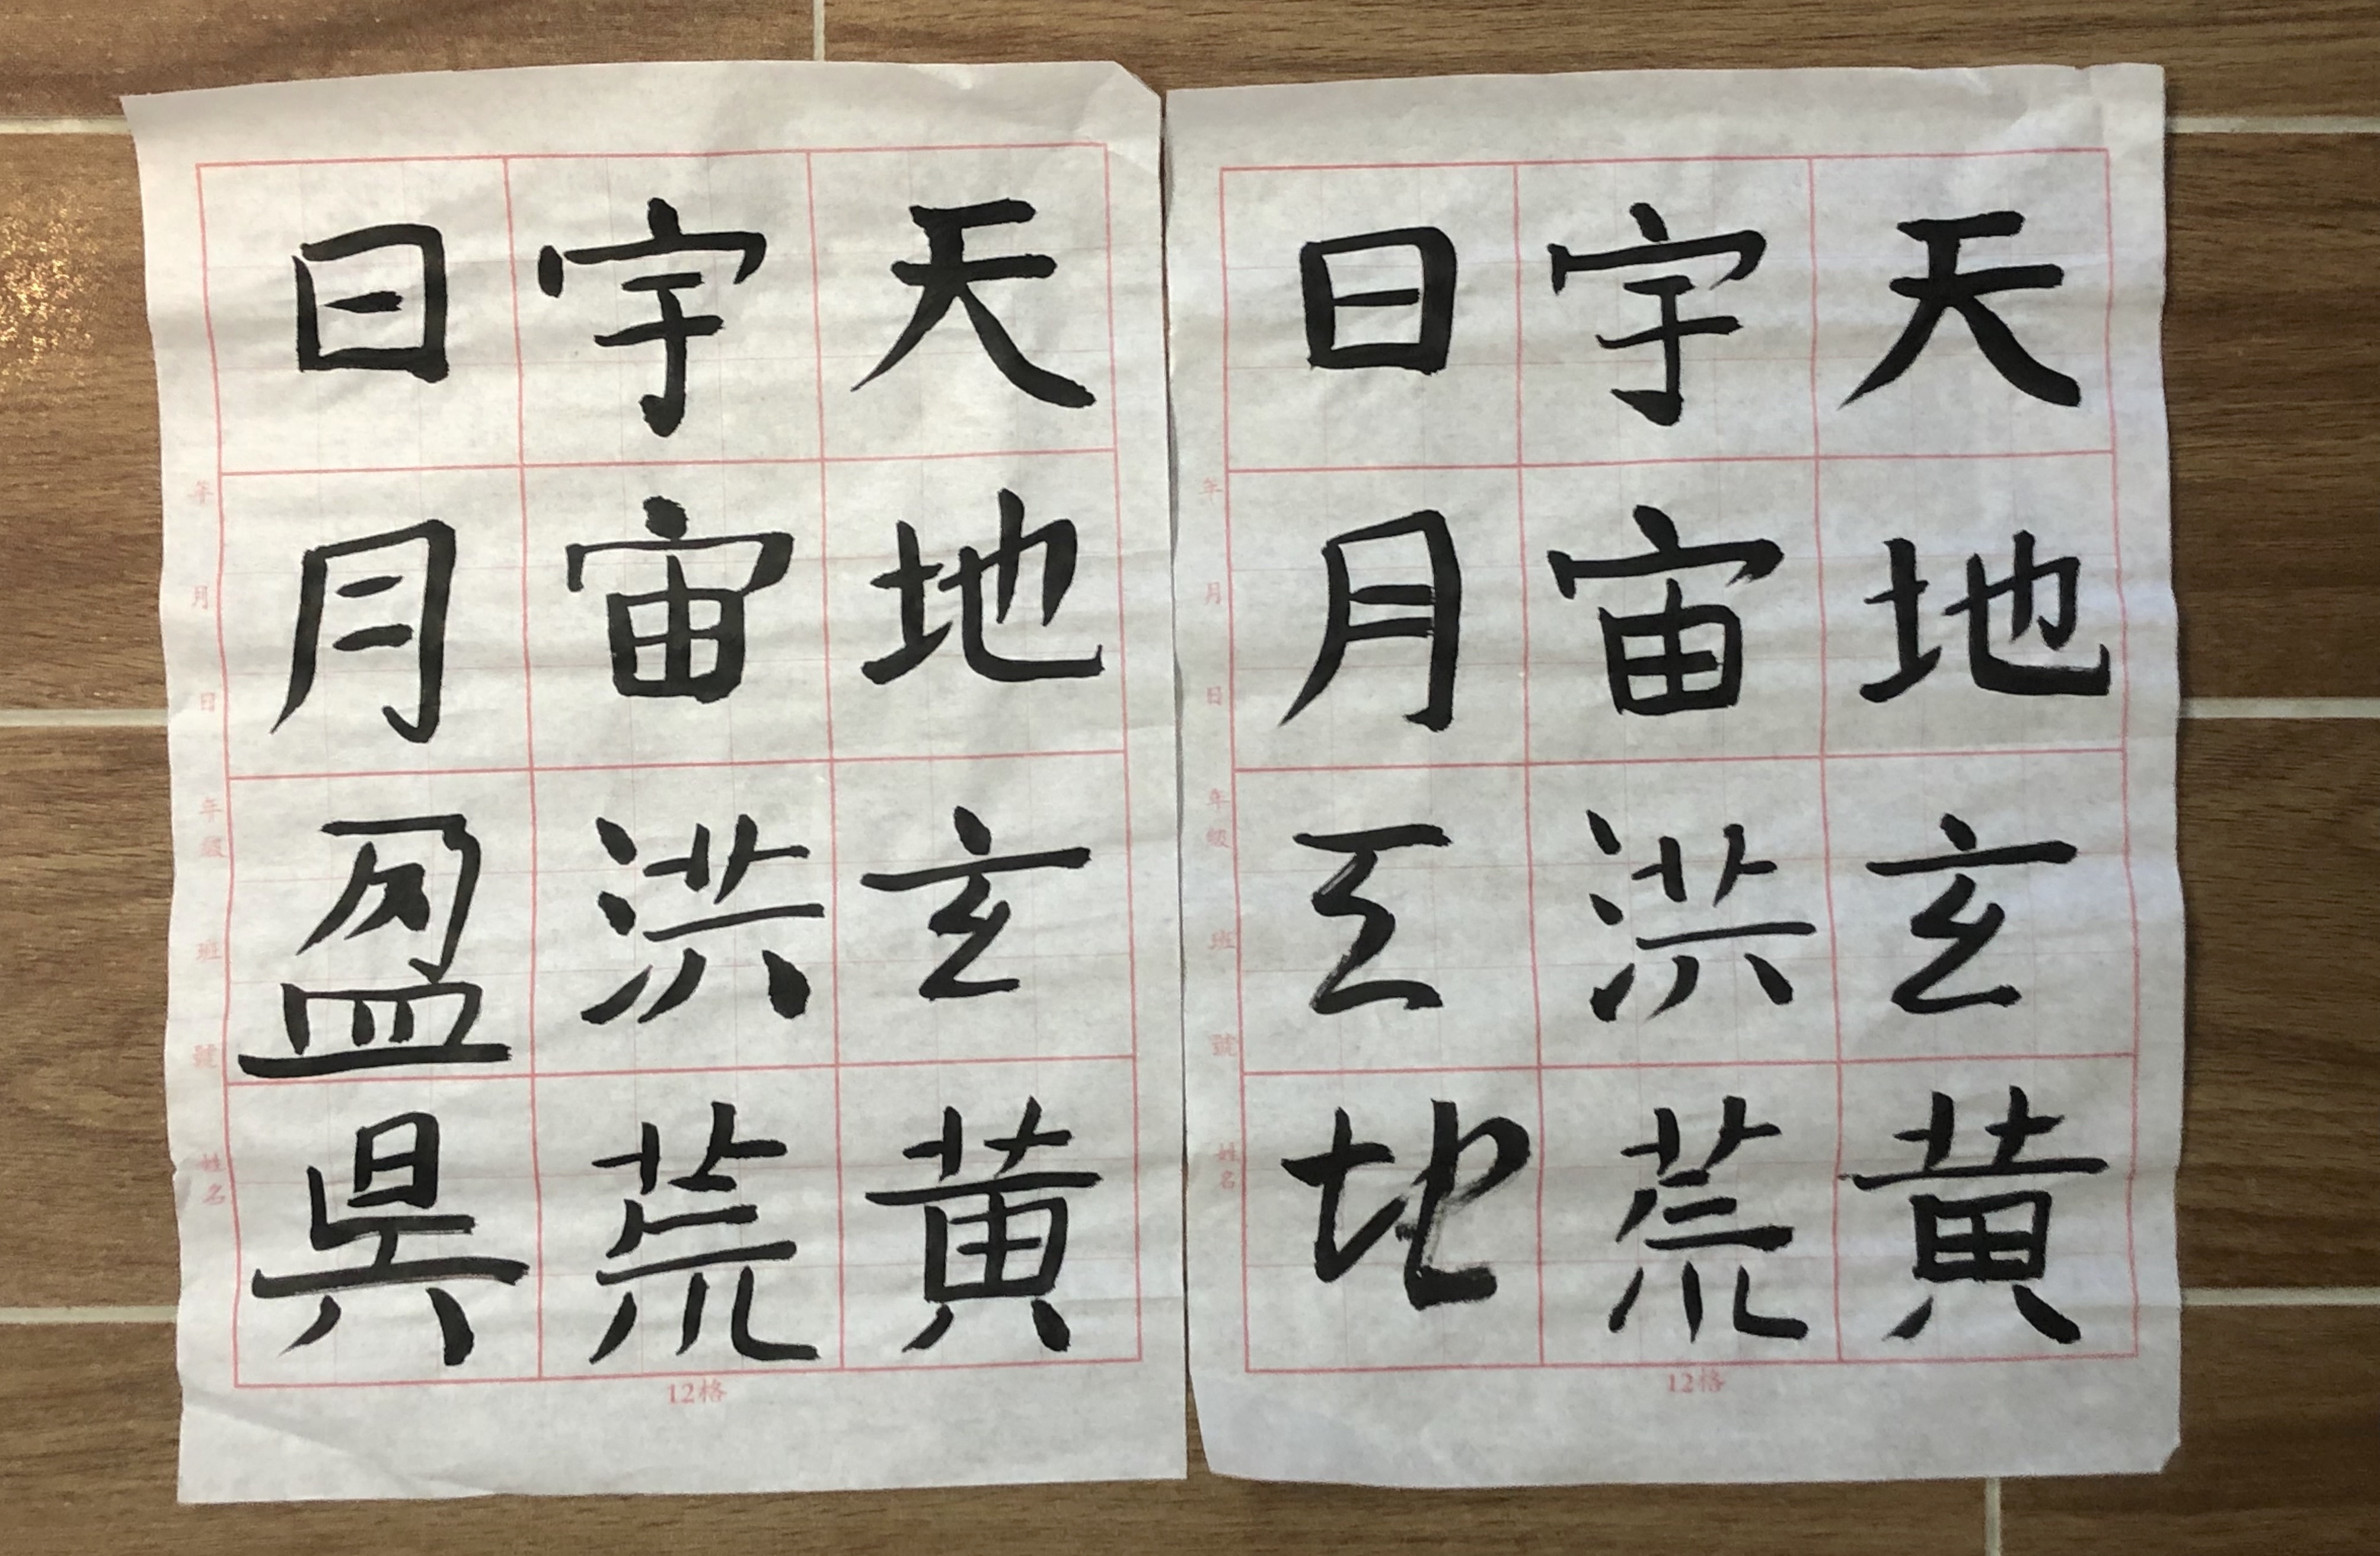 天地玄黄
宇宙洪荒
日月地
年 月 日 年級 班 號 姓名
12格
天地玄黄
宇宙洪荒
日月盈
年 月 日 年級 班 號 姓名
12格